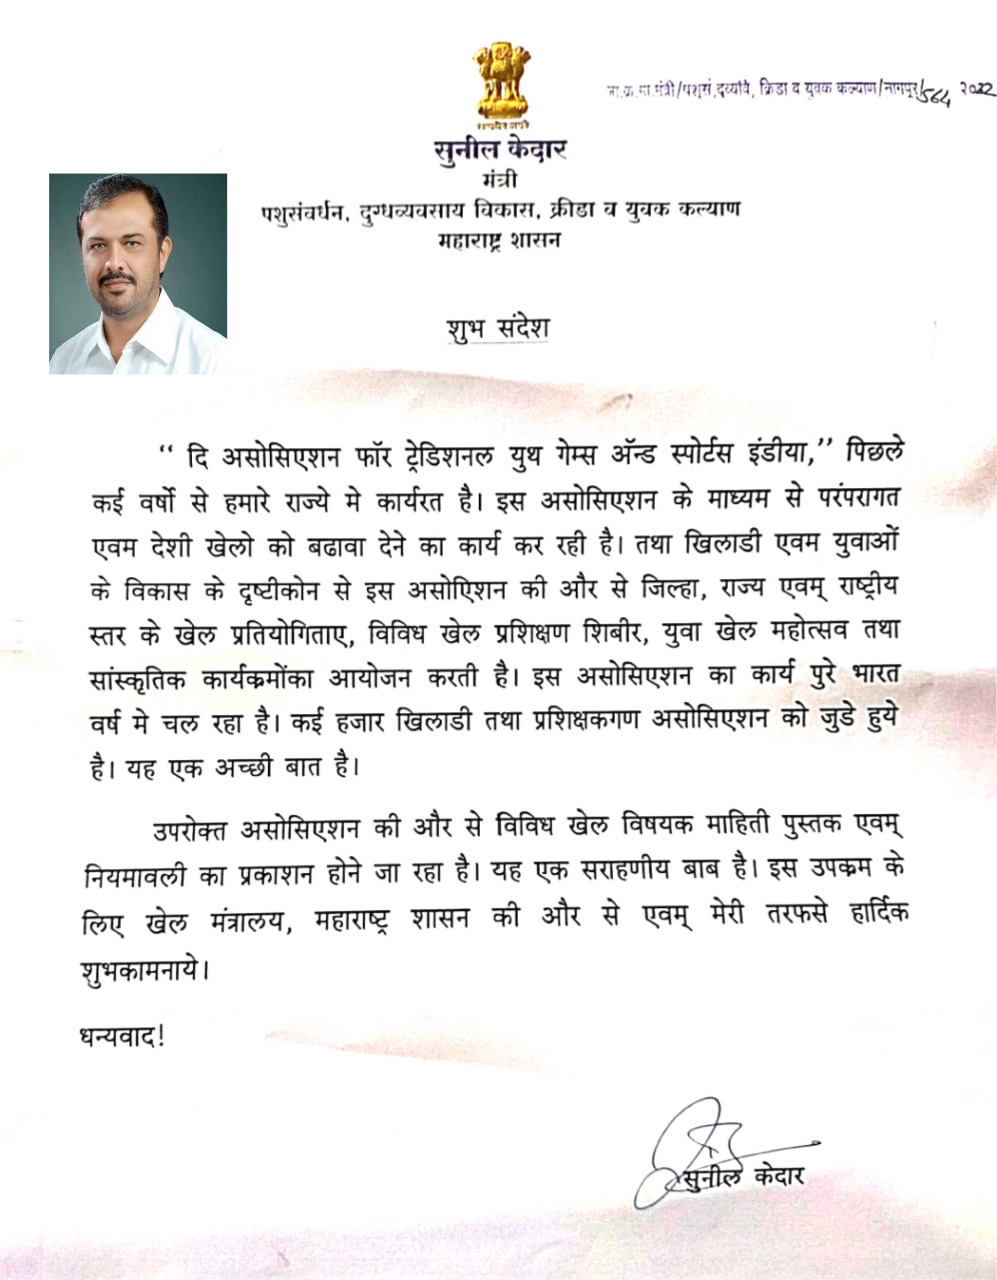 जा.क्र.मा.मंत्री/पशुसं,दुव्यवि, क्रिडा व युवक कल्याण/नागपूर/564 2022
सुनील केदार
मंत्री
पशुसंवर्धन, दुग्धव्यवसाय विकास, क्रीडा व युवक कल्याण
महाराष्ट्र शासन
शुभ संदेश
“ दि असोसिएशन फॉर ट्रेडिशनल युथ गेम्स ॲन्ड स्पोर्टस इंडीया,” पिछले
कई वर्षो से हमारे राज्ये मे कार्यरत है। इस असोसिएशन के माध्यम से परंपरागत
एवम देशी खेलो को बढावा देने का कार्य कर रही है। तथा खिलाडी एवम युवाओं
के विकास के दृष्टीकोन से इस असोएिशन की और से जिल्हा, राज्य एवम् राष्ट्रीय
स्तर के खेल प्रतियोगिताए, विविध खेल प्रशिक्षण शिबीर, युवा खेल महोत्सव तथा
सांस्कृतिक कार्यक्रमोंका आयोजन करती है। इस असोसिएशन का कार्य पुरे भारत
वर्ष मे चल रहा है। कई हजार खिलाडी तथा प्रशिक्षकगण असोसिएशन को जुडे हुये
है। यह एक अच्छी बात है।
उपरोक्त असोसिएशन की और से विविध खेल विषयक माहिती पुस्तक एवम्
नियमावली का प्रकाशन होने जा रहा है। यह एक सराहणीय बाब है। इस उपक्रम के
लिए खेल मंत्रालय, महाराष्ट्र शासन की और से एवम् मेरी तरफसे हार्दिक
शुभकामनाये।
धन्यवाद!
सुनील केदार